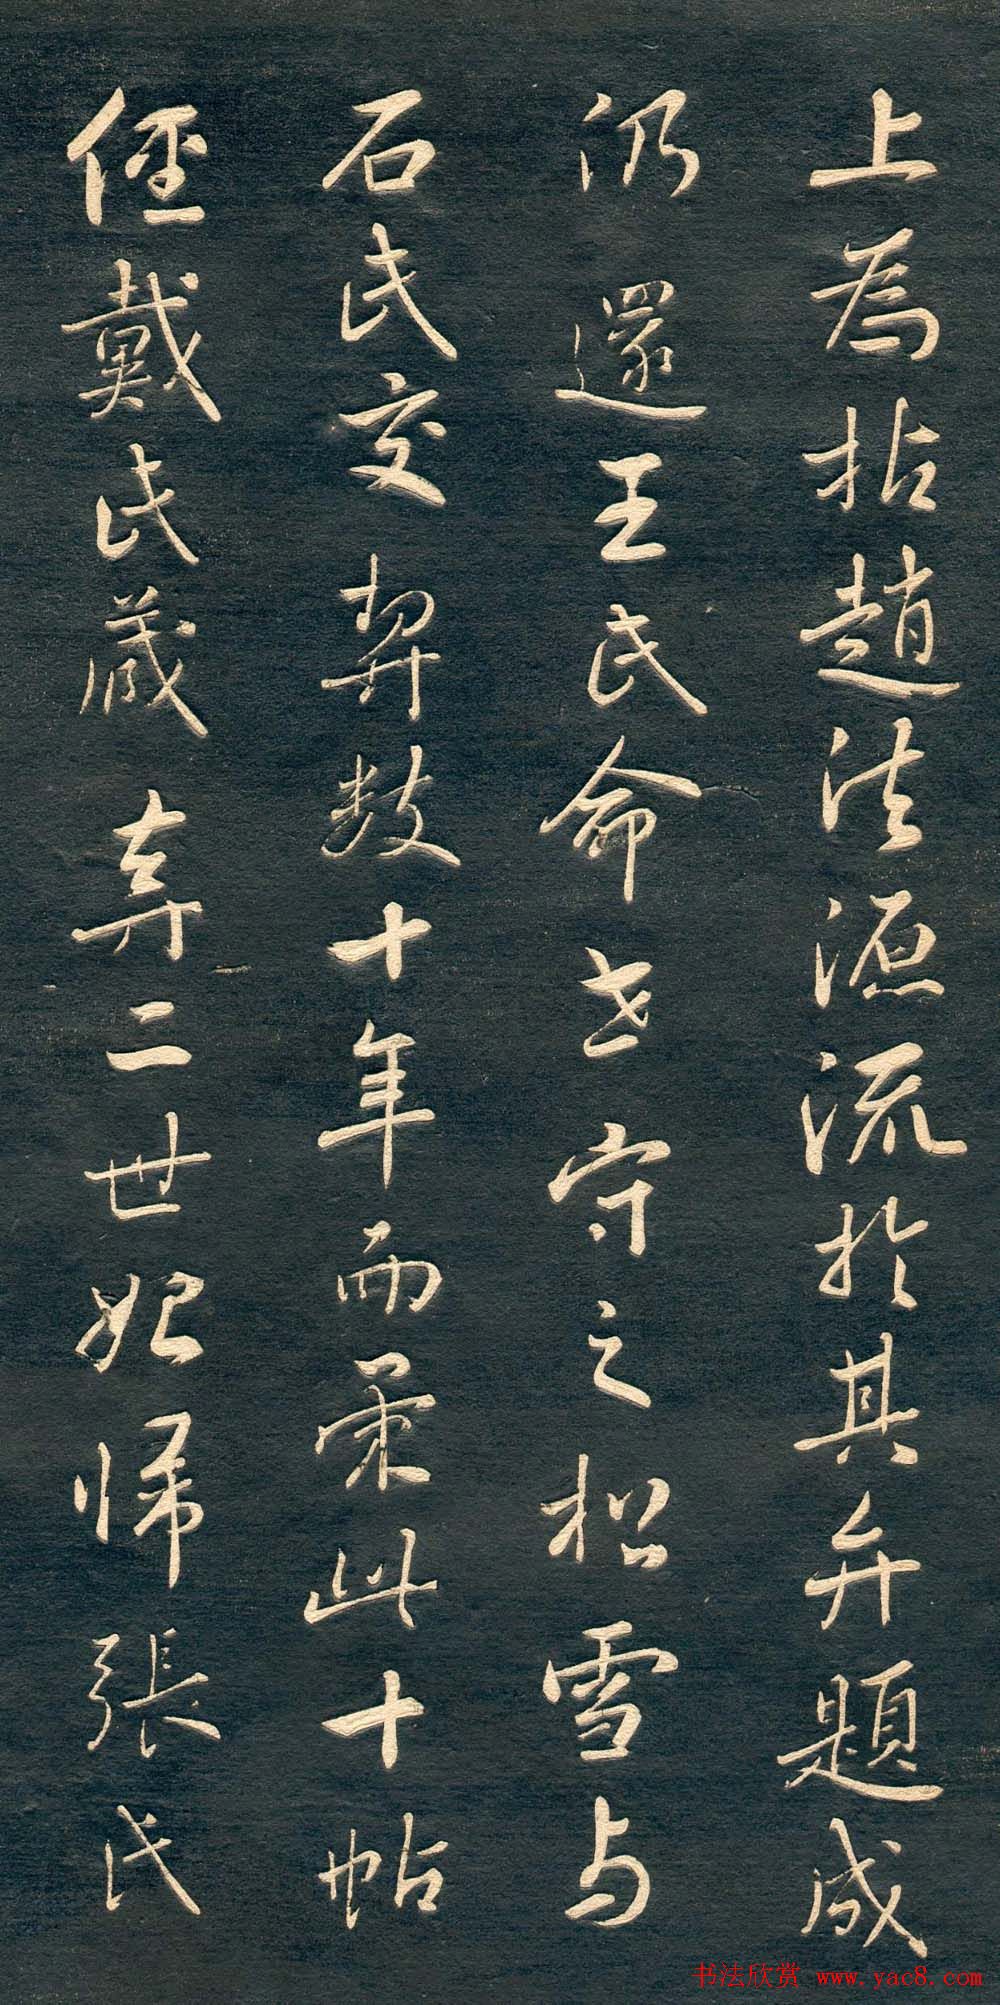 上為拈趙法源流於其弁題成
仍還王氏命世守之松雪与
石氏交契数十年而最此十帖
經戴氏藏弆二世始歸張氏
书法欣赏 www.yac8.com